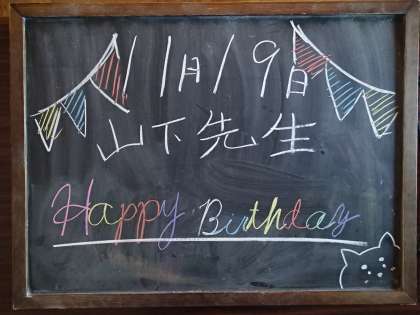 11月19日
山下先生
Happy Birthday